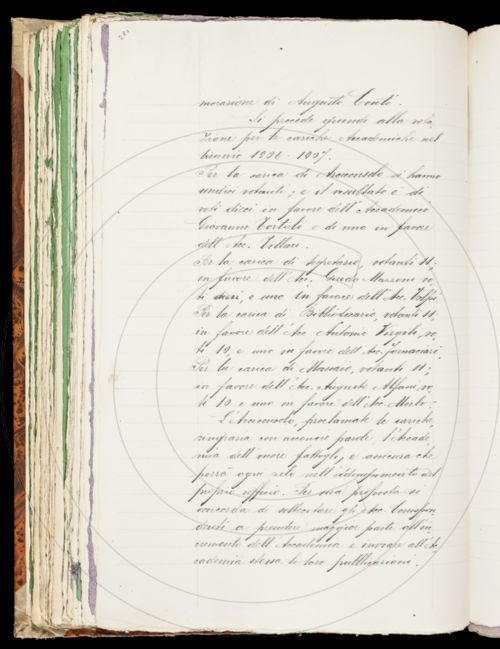 morazione di Augusto Conti.
Si procede quindi alla vota
zione per le cariche Accademiche nel
biennio 1906-1907.
Per la carica di Arciconsolo si hanno
undici votanti; e il resultato è di
voti dieci in favore dell'Accademico
Giovanni Tortoli e di uno in favore
dell'Acc. Villari.
Per la carica di Segretario, votanti 11;
in favore dell'Acc. Guido Mazzoni vo
ti dieci, e uno in favore dell'Acc. Volpi.
Per la carica di Bibliotecario, votanti 11;
in favore dell'Acc. Antonio Virgili, vo
ti 10, e uno in favore dell'Acc. Fornaciari.
Per la carica di Massaio, votanti 11;
in favore dell'Acc. Augusto Alfani, vo
ti 10 e uno in favore dell'Acc.
L'Arciconsolo, proclamate le cariche,
ringrazia con parole l'Accade
mia dell'onore fattogli, e assicura che
porrà ogni zelo nell'adempimento del
proprio ufficio. Per sua proposta si
concorda di sollecitare gli Acc. Corrispon
denti a prendere maggior parte all'in
cremento dell'Accademia e inviare all'Ac
cademia stessa le loro pubblicazioni.